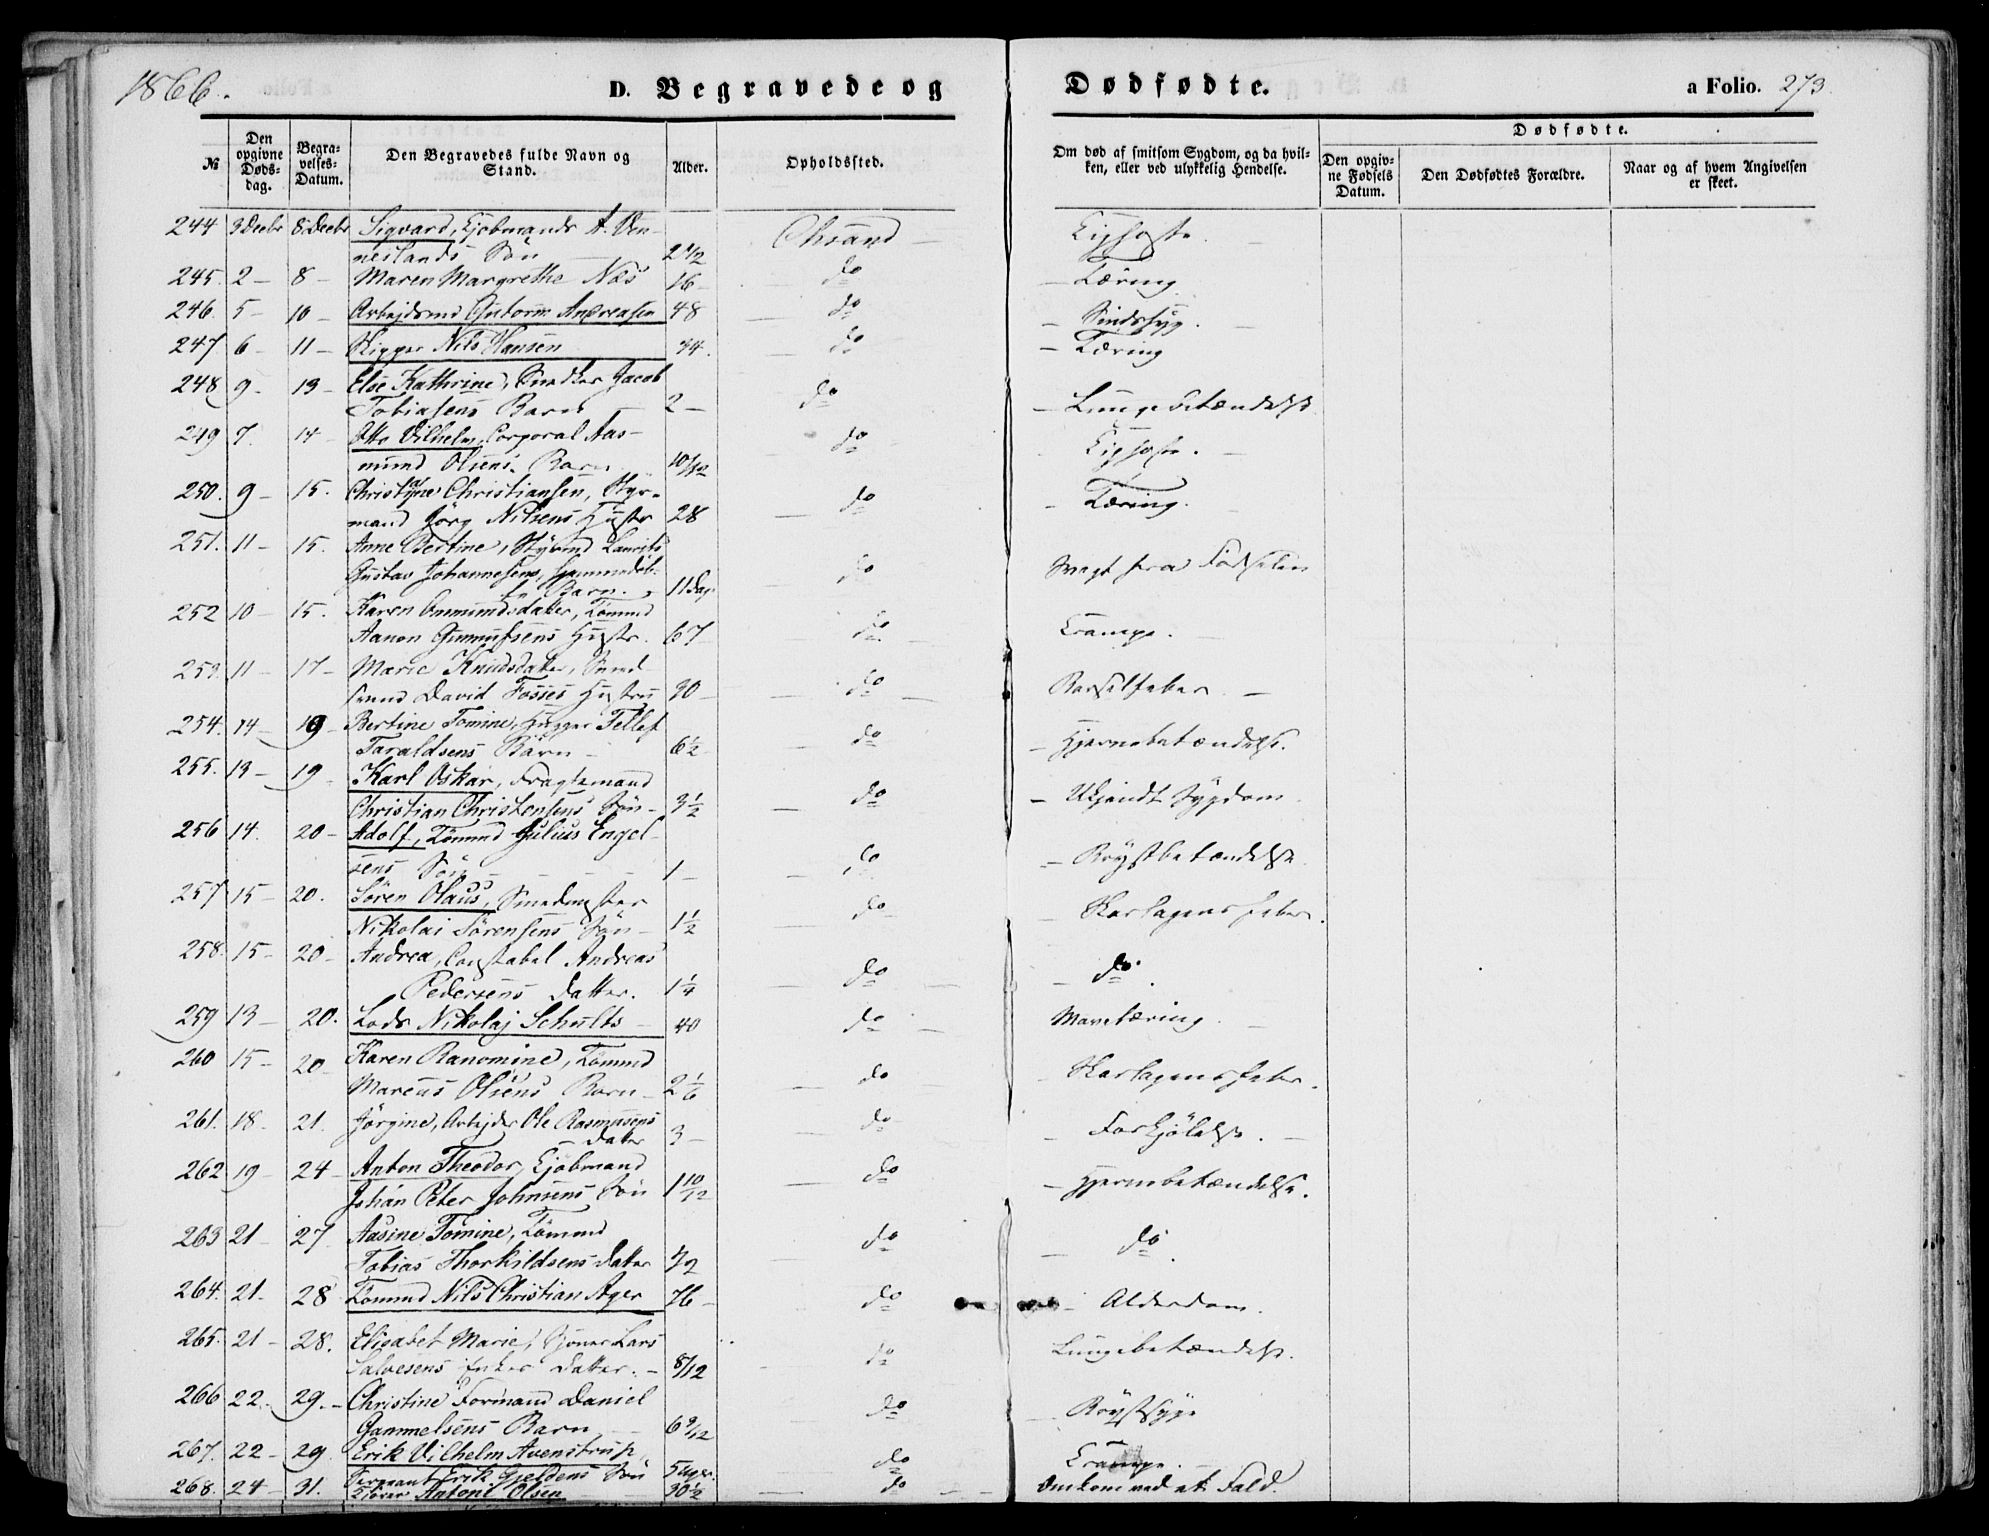 1866.
D. Begravede og Dødfødte.
a Folio. 273.
№
Den opgivne Døds-dag.
Begra-velses-Datum.
Den Begravedes fulde Navn og Stand.
Alder.
Opholdssted.
Om død af smitsom Sygdom, og da hvil-ken, eller ved ulykkelig Hendelse.
Dødfødte.
Den opgiv-ne Fødsels Datum.
Den Dødfødtes Forældre.
Naar og af hvem Angivelsen er skeet.
244 3 Decbr 8. Decbr Sigvard, Kjøbmands A. Ven-
neslands Søn 2 1/2 Chrsand Kighoste
245. 2 – 8 – Maren Margrethe Næs 16 – do – Tæring
246. 5 – 10 – Arbejdsmd Gutorm Andreasen 48 do – Sindssyg.
247 6 – 11 – Skipper Nils Hansen 34. do – Tæring
248 9 – 13 – Else Kathrine, Snedker Jacob
Tobiasens Barn 2 – do – Lungebetændelse
249 7. 14 – Otto Vilhelm, Corporal Aas-
mund Olsens Barn 10/12 do Kighoste.
250. 9 – 15. Christine Christiansen, Styr-
mand Jörg Nilsens Hustr 28 do – Tæring.
251. 11 – 15. Anne Bertine, Styrmd Laurits
Gustav Johannesens,
Barn. 11 Dag do Svagt fra Fødselen
252 10 – 15. Karen Gunmundsdatter, Tömmd
Aanon Gunnufsens Hustr. 67 do Krampe.
253. 11 – 17 – Marie Knudsdatter, Smed-
svend David Fosies Hustru 30 – do Barselfeber. –
254. 14 – 19 – Bertine Tomine, Tellef
Taraldsens Barn – 6 1/2 do – Hjernebetændelse.
255. 13 – 19 – Karl Oskar, Fragtemand
Christian Christensens Søn – 3 1/2 do – Ukjendt Sygdom
256 14. 20 – Adolf, Tömmd Julius Engel-
sens Søn – 1 – do – Brystbetændelse
257 15 – 20. Sören Olaus, Smedmester
Nikolai Sörensens Søn – 1 1/2 do – Skarlagensfeber.
258. 15 – 20 – Andrea, Constabel Andreas
Pedersens Datter. 1 1/4 do – do.
259 13 – 20. Lods Nikolaj Schults – 40 do Mavetæring
260 15 – 20 Karen Ranomine, Tömmd
Marcus Olsens Barn – 2 1/6 do – Skarlagensfeber.
261. 18 – 21. Jörgine, Arbejder Ole Rasmusens
Datter 3 – do – Forkjölelse. –
262 19 – 24 – Anton Theodor, Kjöbmand
Johan Peter Johnsens Søn 1 10/12 do – Hjernebetændelse.
263 21 – 27 Aasine Tomine, Tömmd
Tobias Thorkildsens Datter 1/2 do – do.
264. 21 – 28 Tömmd Nils Christian Ager 76 – do – Alderdom.
265. 21 – 28. Elisabet Marie, Lars
Salvesens Enkes Datter. – 8/12 do Lungebetændelse.
266 22 – 29. – Christine Formand Daniel
Gammelsens Barn 6 9/12 do – Brystsyge
267. 22 – 29 Erik Vilhelm Avenstrup,
Sergeant Erik Gjeldens Søn 5 Uger. do Krampe. –
268. 24 – 31. Antoni Olsen 30 1/2 do Omkom ved et Fald.